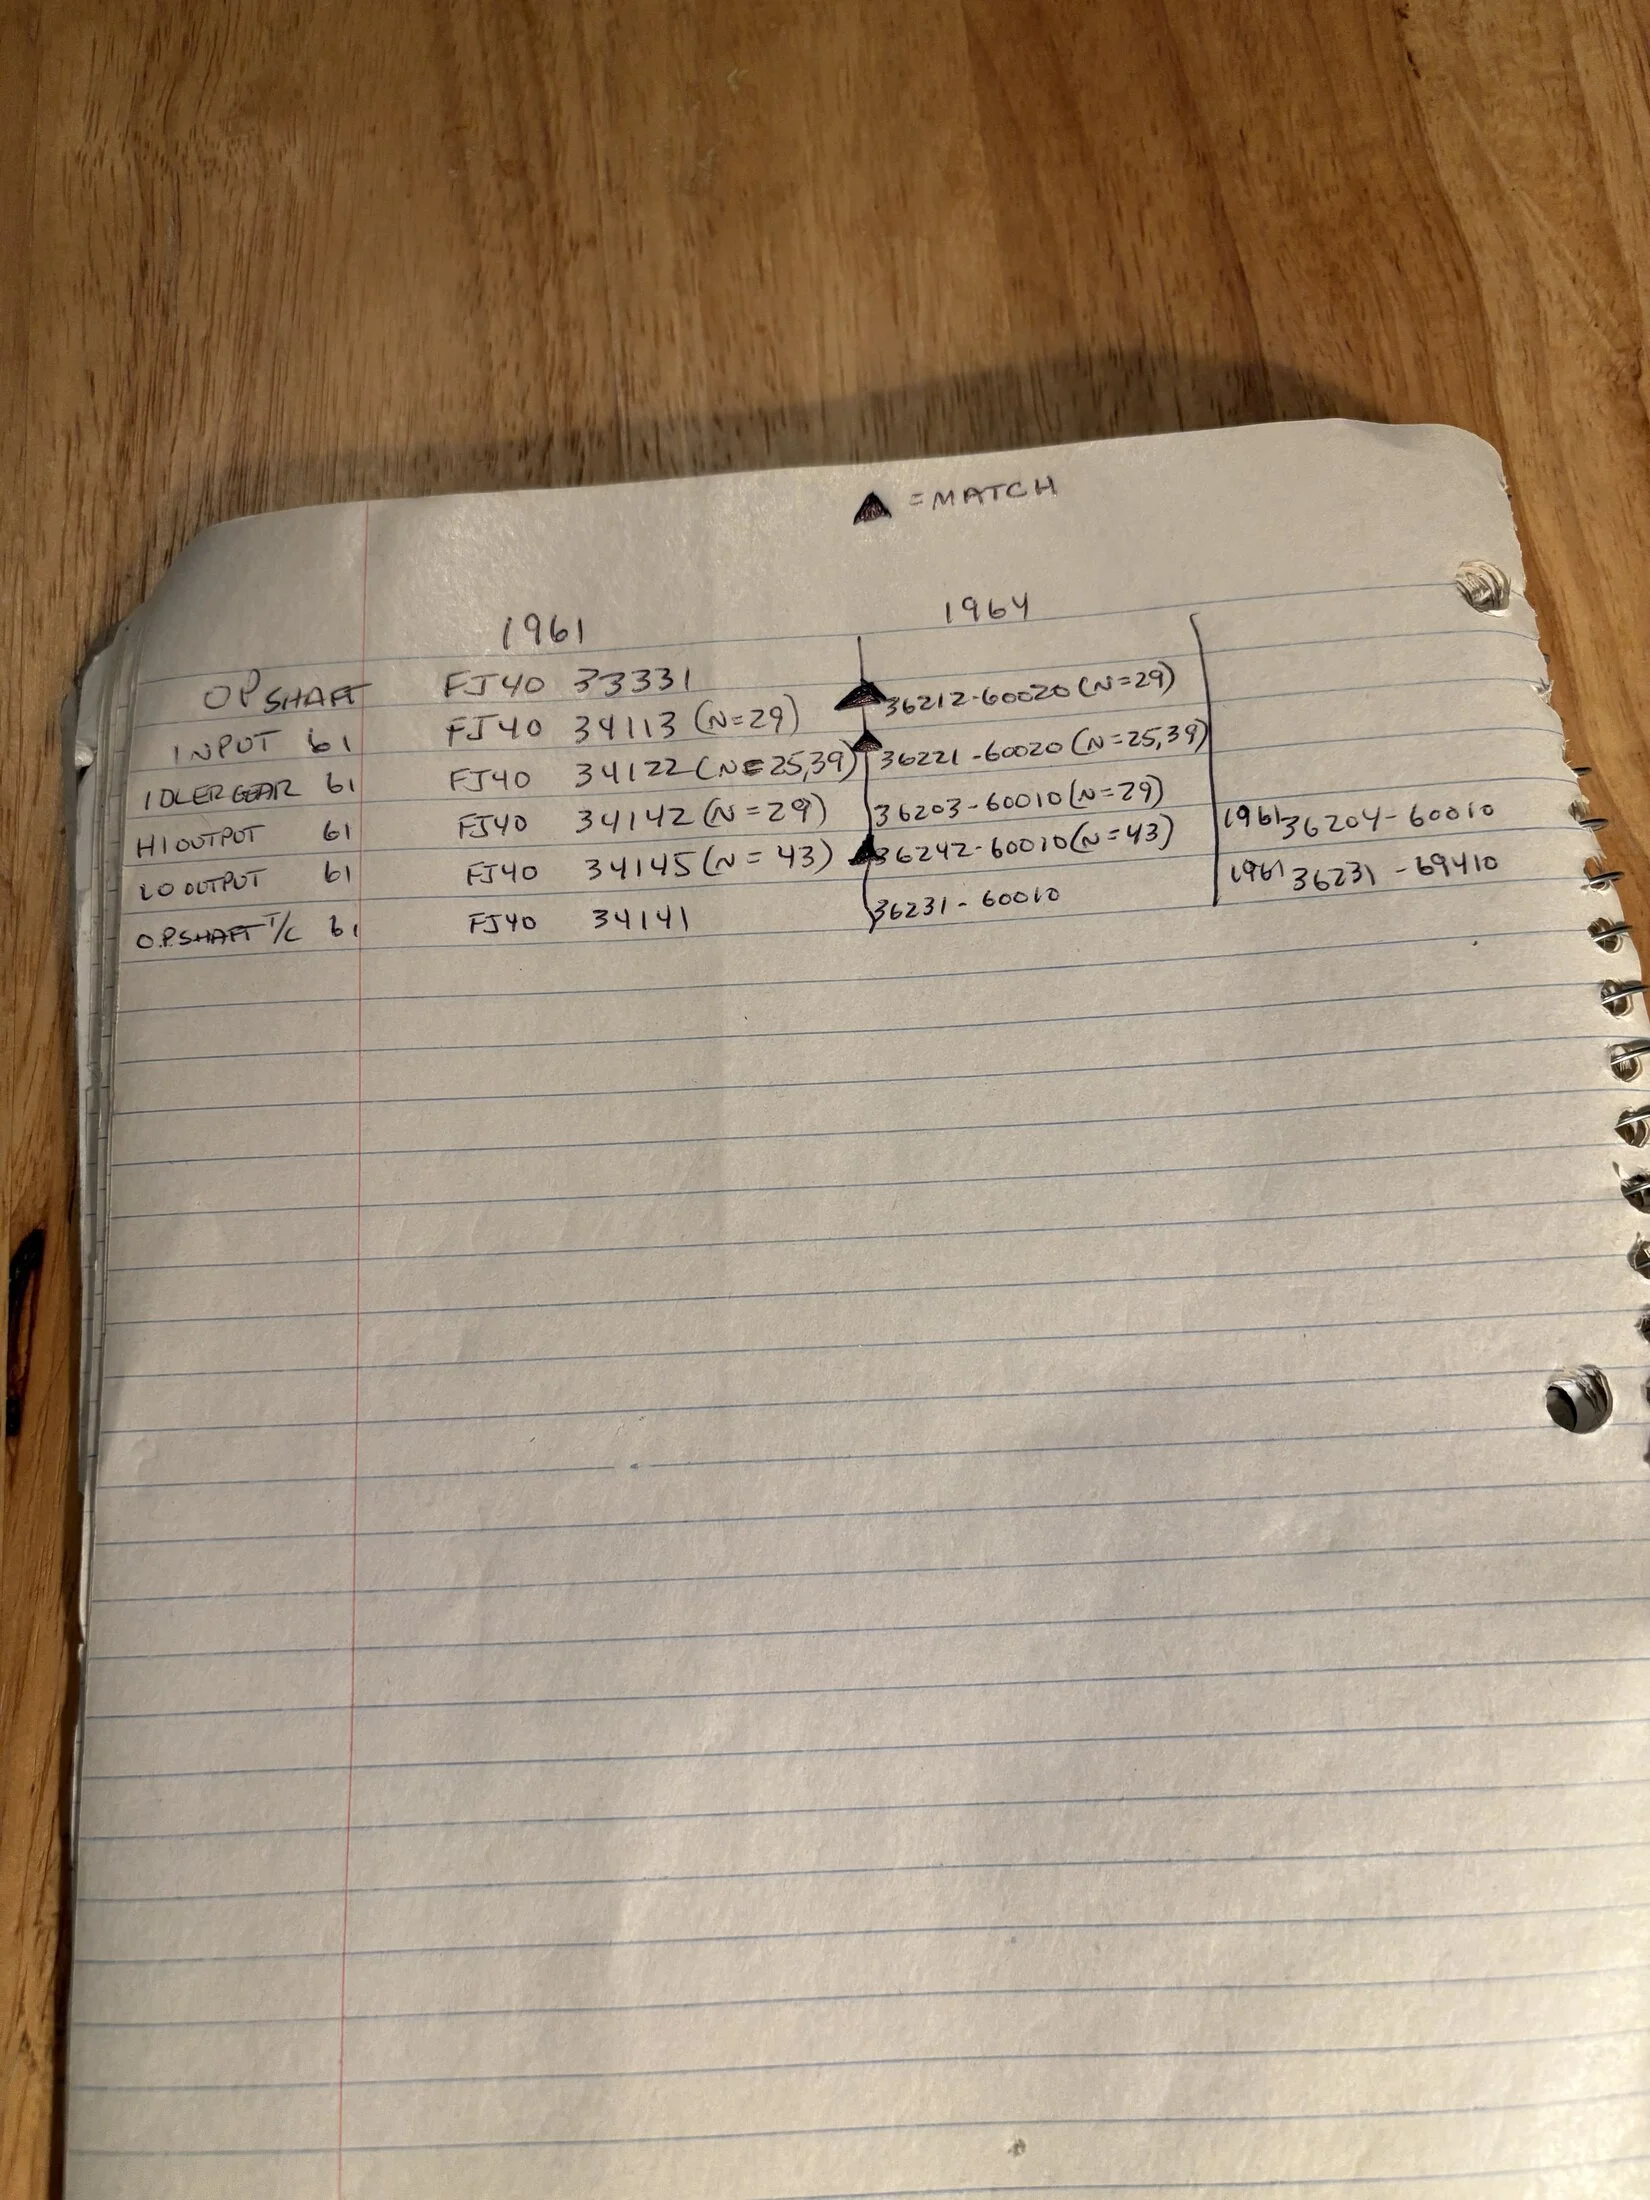 ▲ = MATCH
1961 1964
OP SHAFT FJ40 33331
INPUT 61 FJ40 34113 (N=29) ▲ 36212-60020 (N=29)
IDLER GEAR 61 FJ40 34122 (N=25,39) ▲ 36221-60020 (N=25,39)
HI OUTPUT 61 FJ40 34142 (N=29) 36203-60010 (N=29) 1961 36204-60010
LO OUTPUT 61 FJ40 34145 (N=43) ▲ 36242-60010 (N=43) 1961 36231-69410
O.P. SHAFT T/C 61 FJ40 34141 36231-60010